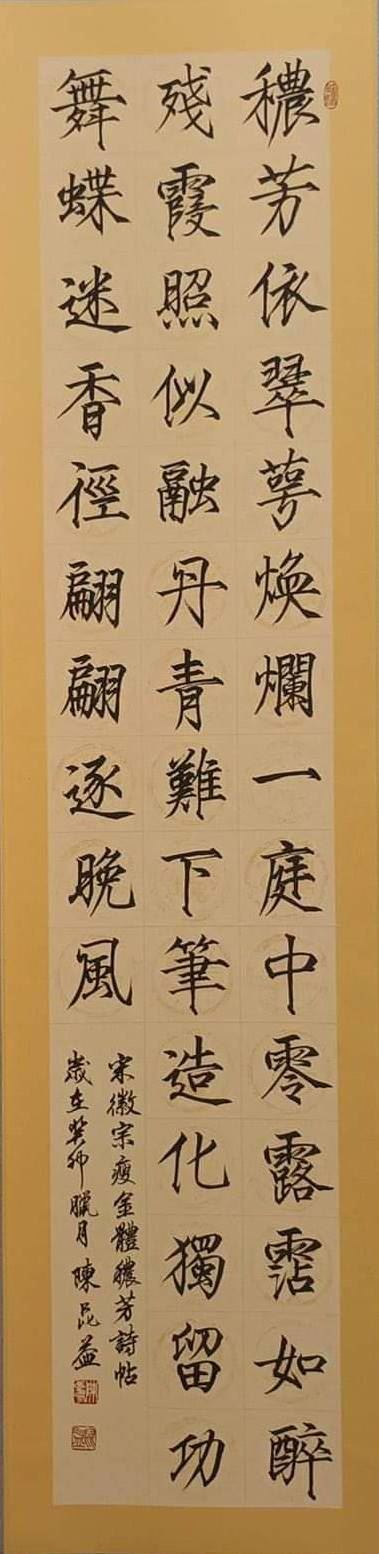 穠芳依翠萼煥爛一庭中零露霑如醉
殘霞照似融丹青難下筆造化獨留功
舞蝶迷香徑翩翩逐晚風
宋徽宗瘦金體穠芳詩帖
歲在癸卯臘月陳昆益